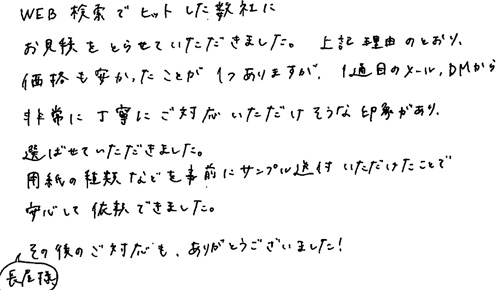 WEB検索でヒットした数社に
お見積をとらせていただきました。 上記理由のとおり、
価格も安かったことが1つありますが、1通目のメール、DMから
非常に丁寧にご対応いただけそうな印象があり、
選ばせていただきました。
用紙の種類などを事前にサンプル送付いただけたことで
安心して依頼できました。
その後のご対応も、ありがとうございました!
長屋様